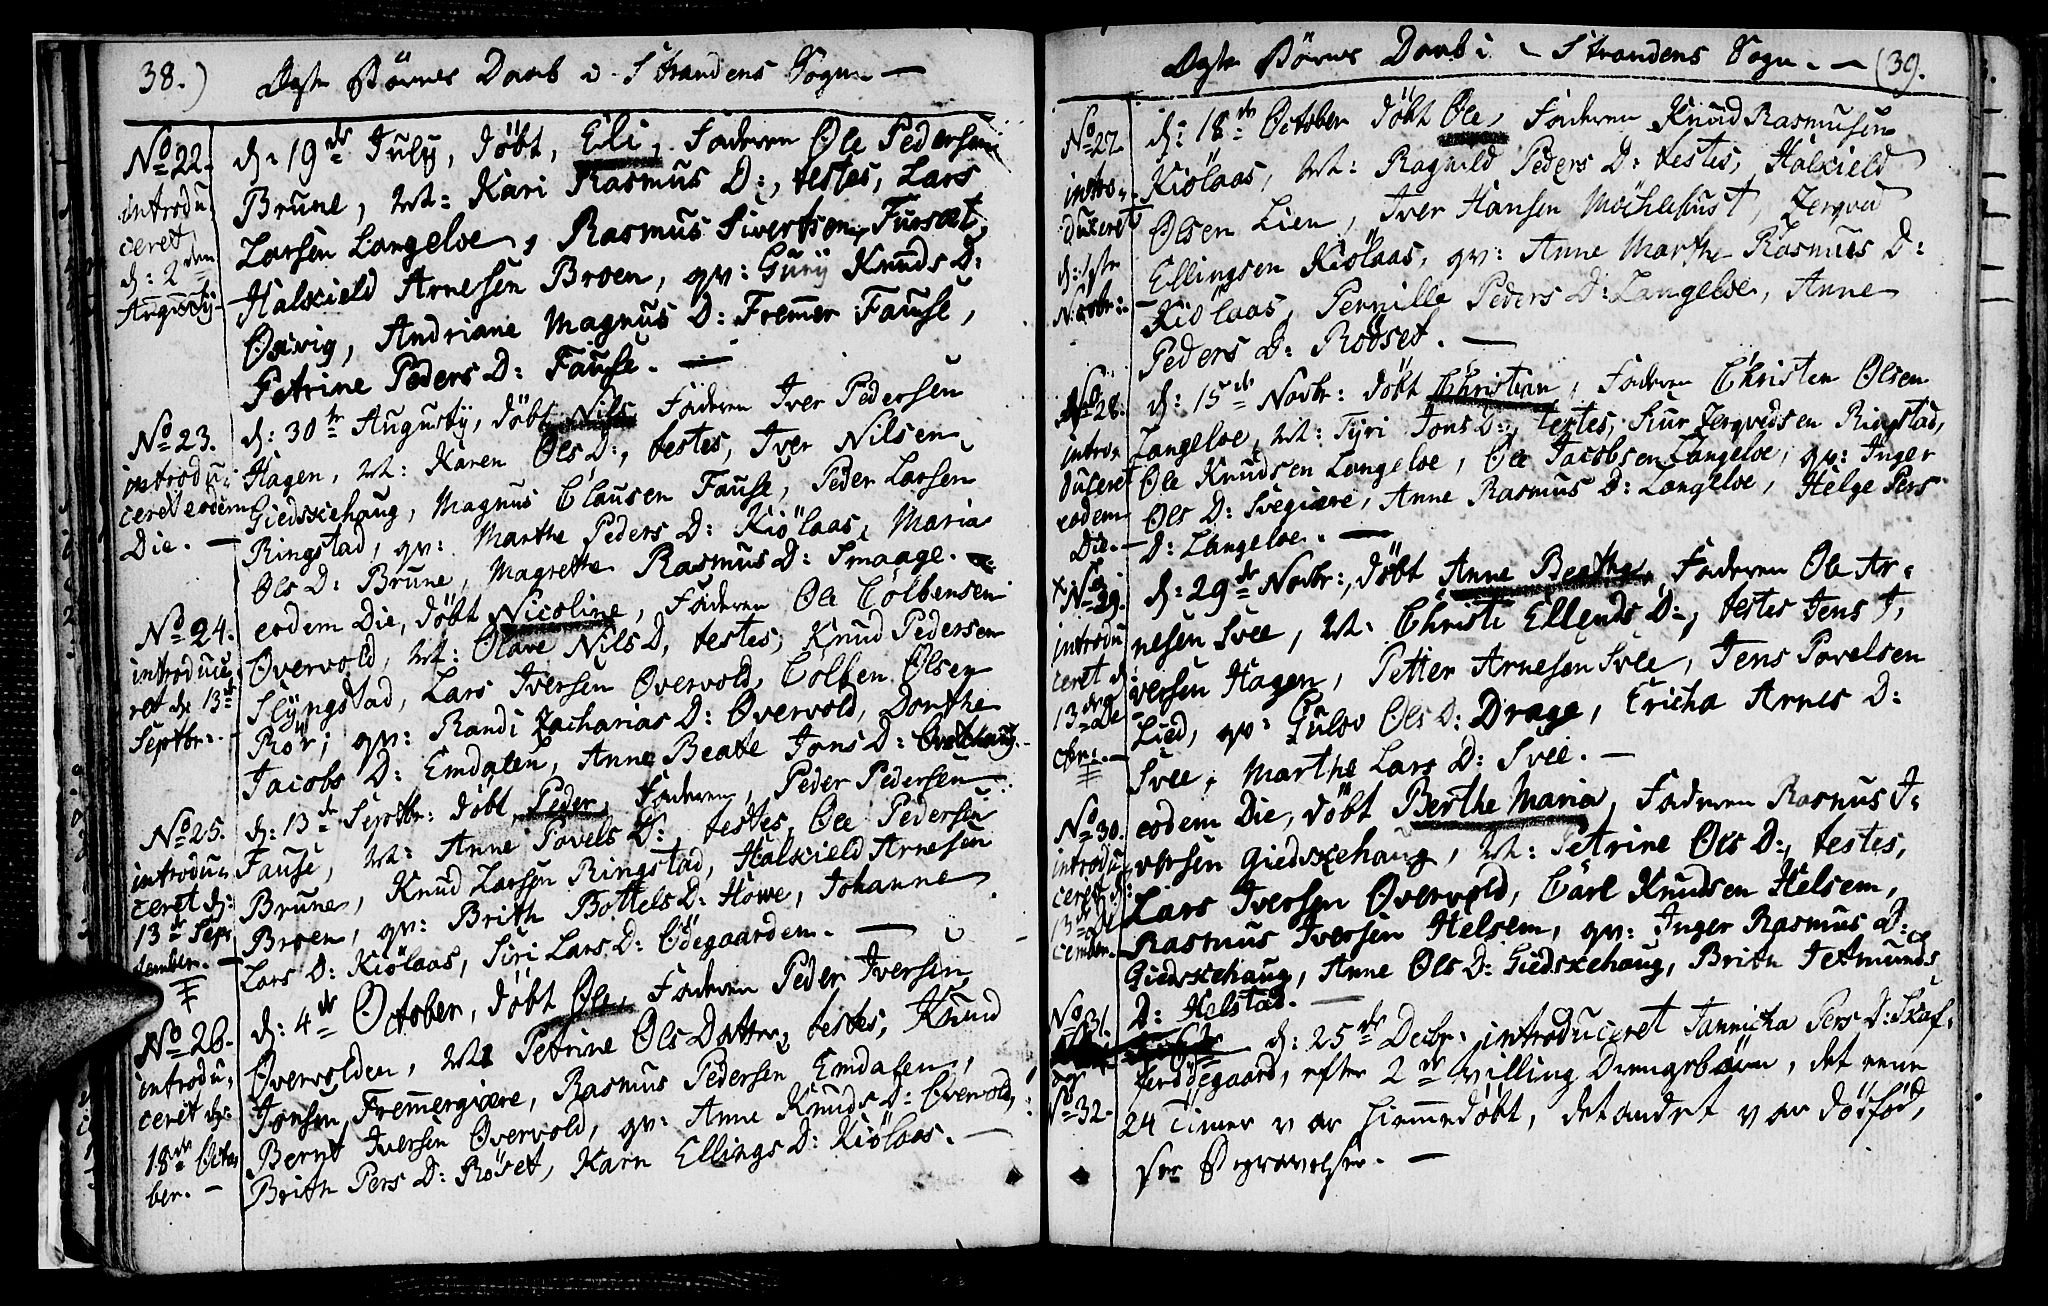 38.) Ægte Børnes Daab i Strandens Sogn —
No 22.
introdu
ceret
d: 2den
Augusty
d: 19de July, døbt, Eli, Faderen Ole Pedersen
Brune, M: Kari Rasmus D:, testes, Lars
Larsen Langeloe, Rasmus Sivertsen Furset,
Halkield Arnesen Broen, qv: Gurij Knuds D:
Øxvig, Andriane Magnus D: Fremer Fause,
Petrine Peders D: Fause. —
No 23.
introdu:
ceret eodem
Die. —
d: 30te Augusty, døbt Nils Faderen Iver Pedersen
Hagen, M: Karen Ols D:, testes, Iver Nilsen
Giedskehaug, Magnus Clausen Fause, Peder Larsen
Ringstad, qv: Marthe Peders D: Kiölaas, Maria
Ols D: Brune, Magrethe Rasmus D: Smaage. —
No 24.
introduce
ret d: 13de
Septbr: —
eodem Die, døbt Nicoline, Faderen Ole Colbensen
Øvervold, M: Olave Nils D, testes, Knud Pedersen
Slÿngstad, Lars Iversen Øvervold, Colben Olsen
Rör, qv: Randi Zacharias D: Øvervold, Dorthe
Jacobs D: Emdalen, Anne Beate Jons D: Øvrehaug.
No 25.
introdu
ceret d:
13de Sep
tember. —
d: 13de Septbr: døbt Peder, Faderen, Peder Pedersen
Fause, M: Anne Povels D:, testes, Ole Pedersen
Brune, Knud Larsen Ringstad, Halkield Arnesen
Broen, qv: Brith Bottels D: Howe, Johanne
Lars D: Kiölaas, Siri Lars D: Ödegaarden. —
No 26.
introdu,
ceret d:
18de Octo
ber. —
d: 4de October, døbt Ole, Faderen Peder Iversen
Øvervolden, M: Petrine Ols Datter, testes, Knud
Jonsen, Fremergiære, Rasmus Pedersen Emdalen,
Bernt Iversen Øvervold, qv: Anne Knuds D: Øvervold,
Brith Pers D: Röset, Karn Ellings D: Kiölaas. —
Ægte Børnes Daab i Strandens Sogn. — (39.
No 27
intro-
duceret
d: 1ste
Novbr: —
d: 18de October døbt Ole, Faderen Knud Rasmusen
Kiölaas, M: Ragnild Peders D: testes, Halkield
Olsen Lien, Iver Hansen Möchlebust, Jerqved
Ellingsen Kiölaas, qv: Anne Marthe Rasmus D:
Kiölaas, Pernille Peders D: Langeloe, Anne
Peders D: Roöset. —
No 28.
introu
duceret
eodem
Die. —
d: 15de Novbr: døbt Christian, Faderen Christen Olsen
Langeloe, M: Tyri Jons D:, testes, Siur Jerqvedsen Ringstad,
Ole Knudsen Langeloe, Ole Jacobsen Langeloe, qv: Inger
Ols D: Svegiære, Anne Rasmus D: Langeloe, Helge Pers
D: Langeloe. —
No 29.
introdu
ceret d:
13de De
cbr: —
d: 29de Novbr:, døbt Anne Berthe, Faderen Ole Ar-
nesen Svee, M: Christi Ellends D:, testes Jens I,
versen Hagen, Petter Arnesen Svee, Jens Povelsen
Lied, qv: Gulov Ols D: Drage, Ericha Arnes D:
Svee, Marthe Lars D: Svee. —
No 30.
introdu
ceret d:
13de De
cember. —
eodem Die, døbt Berthe Maria, Faderen Rasmus I:
versen Giedskehaug, M: Petrine Ols D:, testes,
Lars Iversen Øvervold, Carl Knudsen Helsem,
Rasmus Iversen Helsem, qv: Inger Rasmus D:
Giedskehaug, Anne Ols D: Giedskehaug, Brith Tetmunds
D: Helstad. —
No 31.
og
No 32.
d: 25de Decbr: introduceret Jannicha Pers D: Skaf,
ferödegaard, efter 2de Villing Drengebörn, det eene
24 Timer var hiemmedøbt, det andet var dödföd,
see Begravelser. —